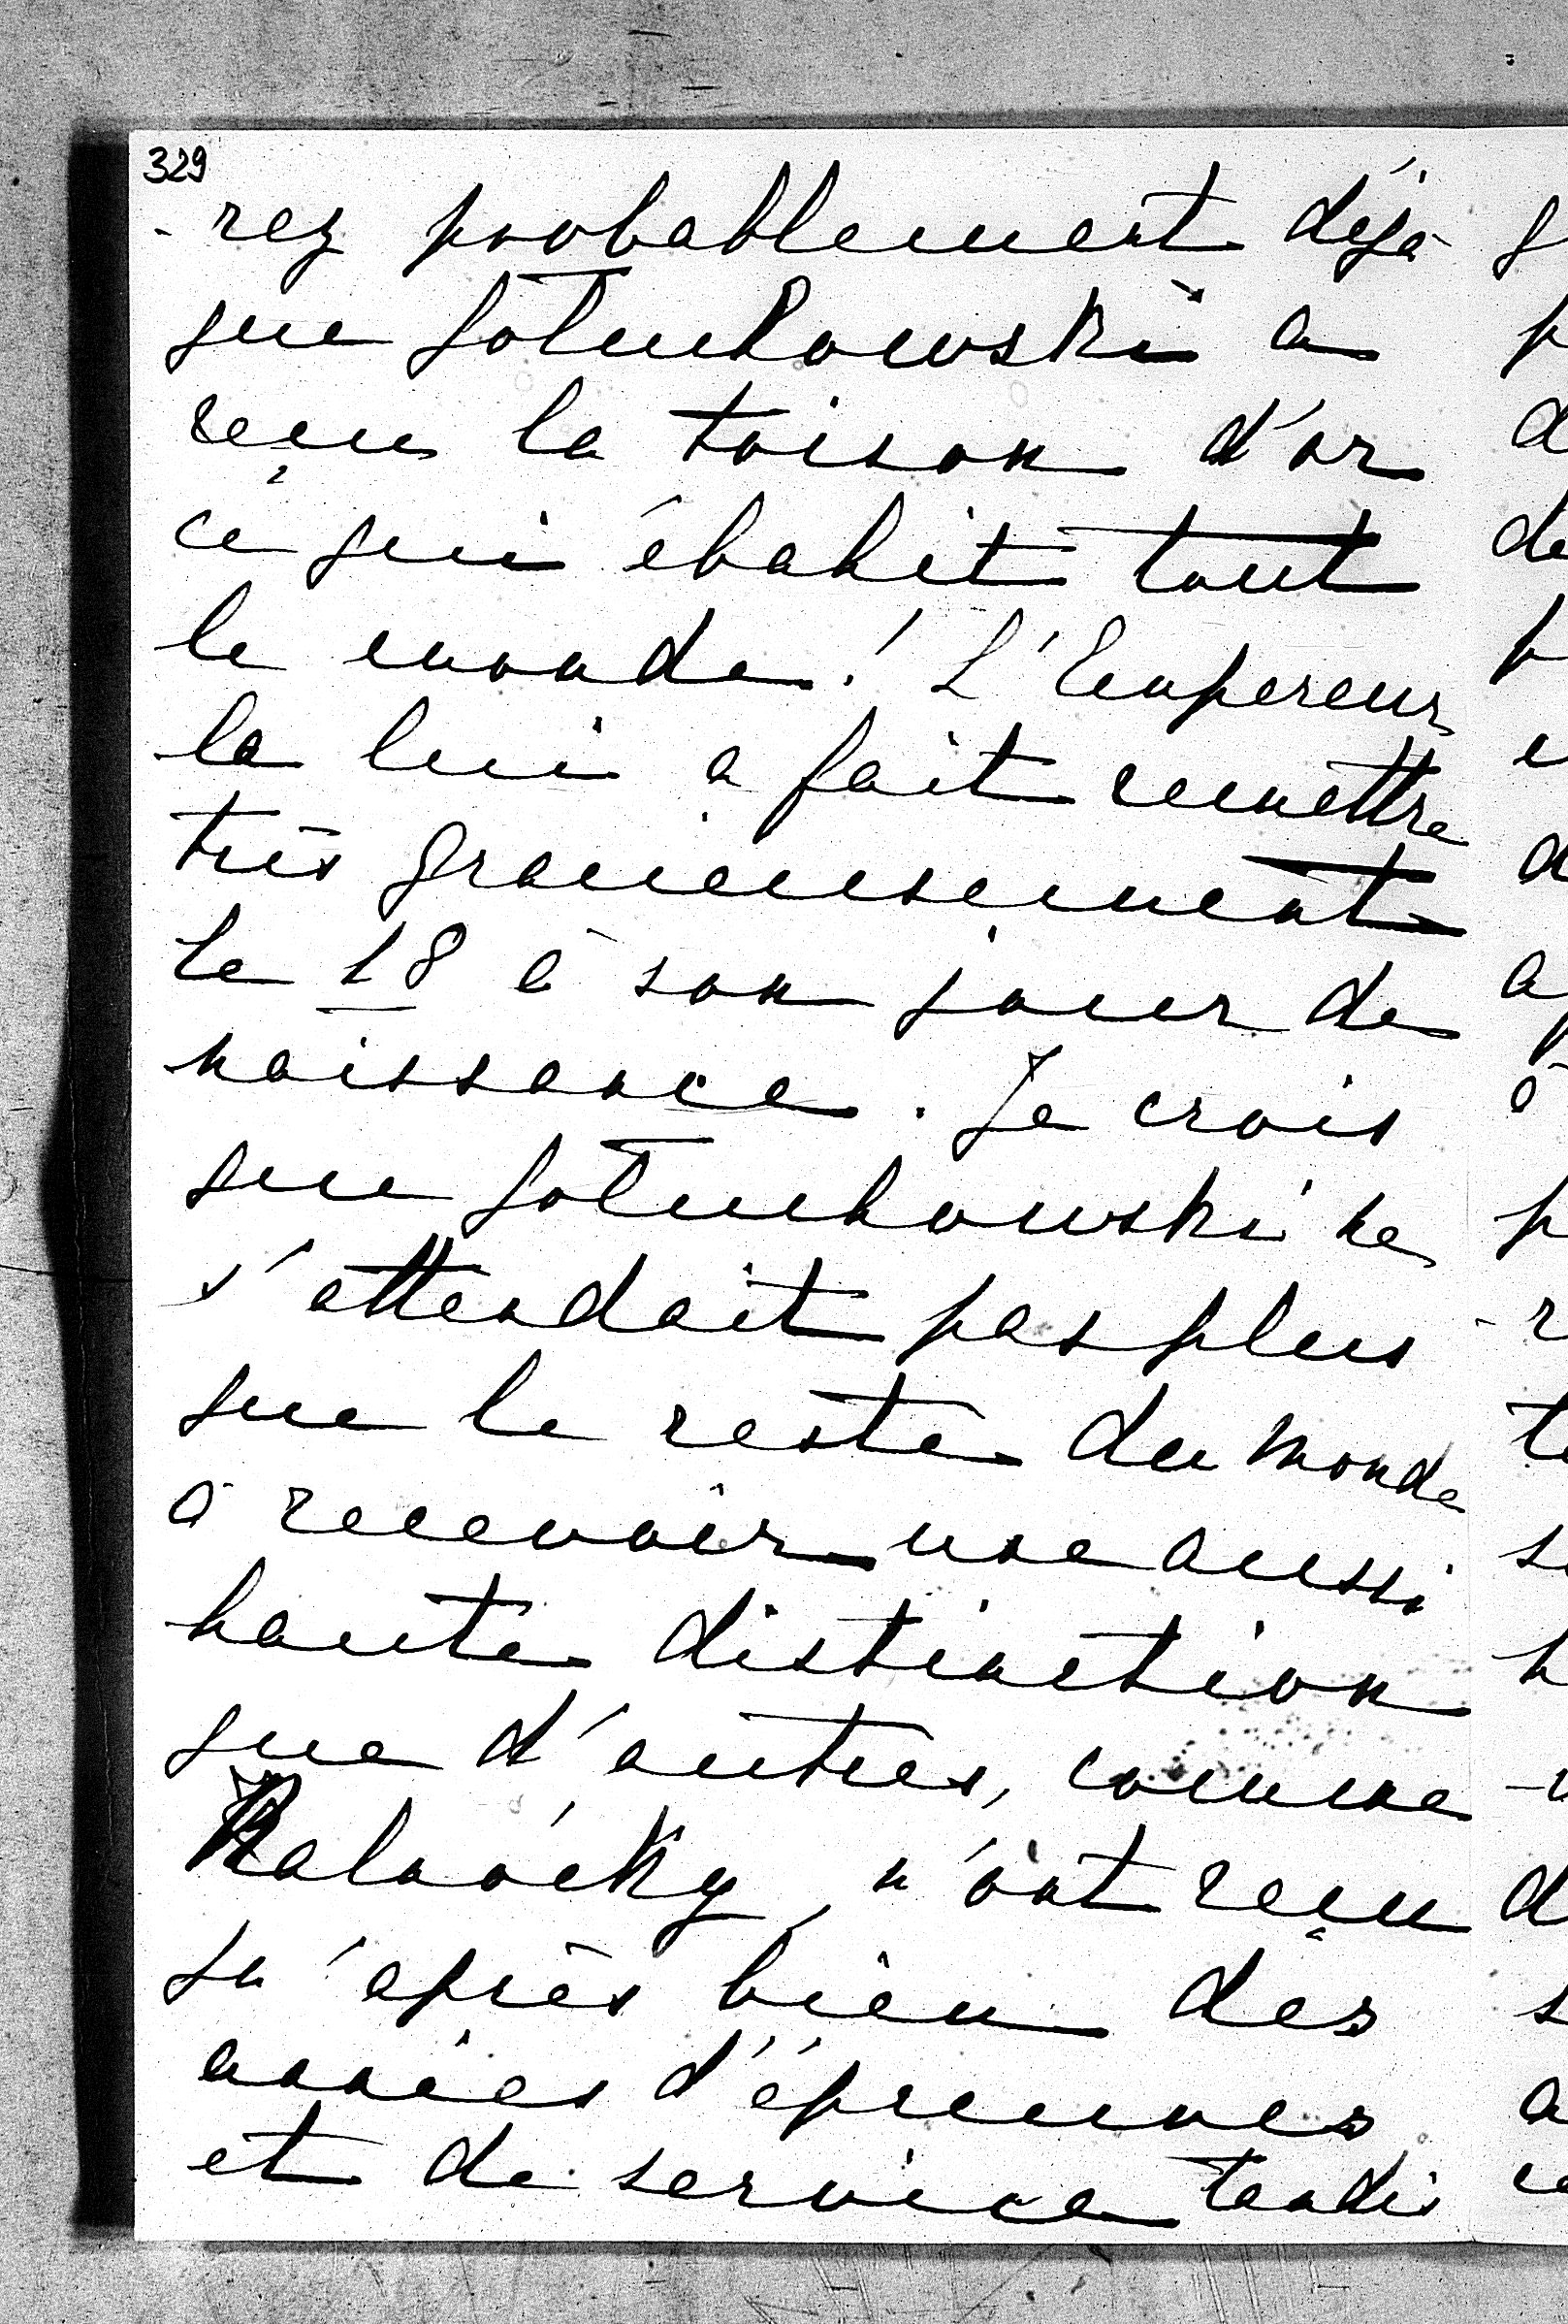 329
-rez probablement déjà
que Gołuchowski a
reçu la toison d'or
ce qui ébahit tout
le monde! L'Empereur
la lui a fait remettre
très gracieusement
le 18 à son jour de
naissance. Je crois
que Gołuchowski ne
s'attendait pas plus
que le reste du monde
à recevoir une aussi
haute distinction
que d'autres, comme
Kalnócky, n'ont reçu
qu'après bien des
années d'épreuves
et de service tandis